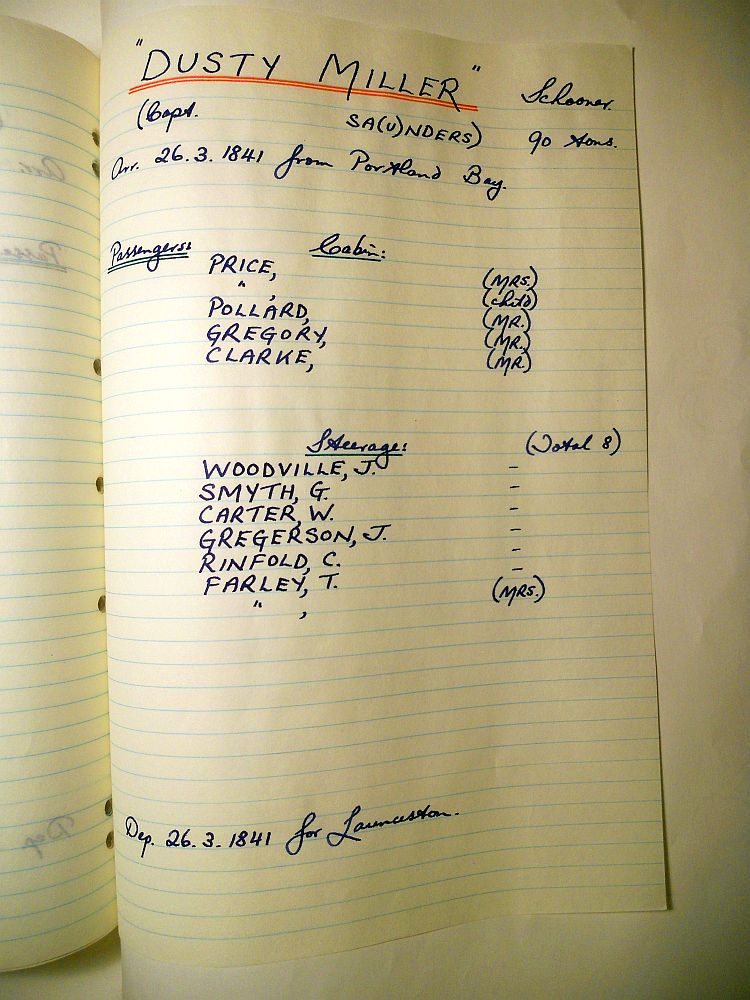 "DUSTY MILLER" Schooner.
(Capt. SA(U)NDERS) 90 tons.
Arr. 26.3.1841 from Portland Bay.
Passengers: Cabin:
PRICE, (MRS.)
" , (child)
POLLARD, (MR.)
GREGORY, (MR.)
CLARKE, (MR.)
Steerage: (Total 8)
WOODVILLE, J. -
SMYTH, G. -
CARTER, W. -
GREGERSON, J. -
RINFOLD, C. -
FARLEY, T. -
" , (MRS.)
Dep. 26.3.1841 for Launceston.